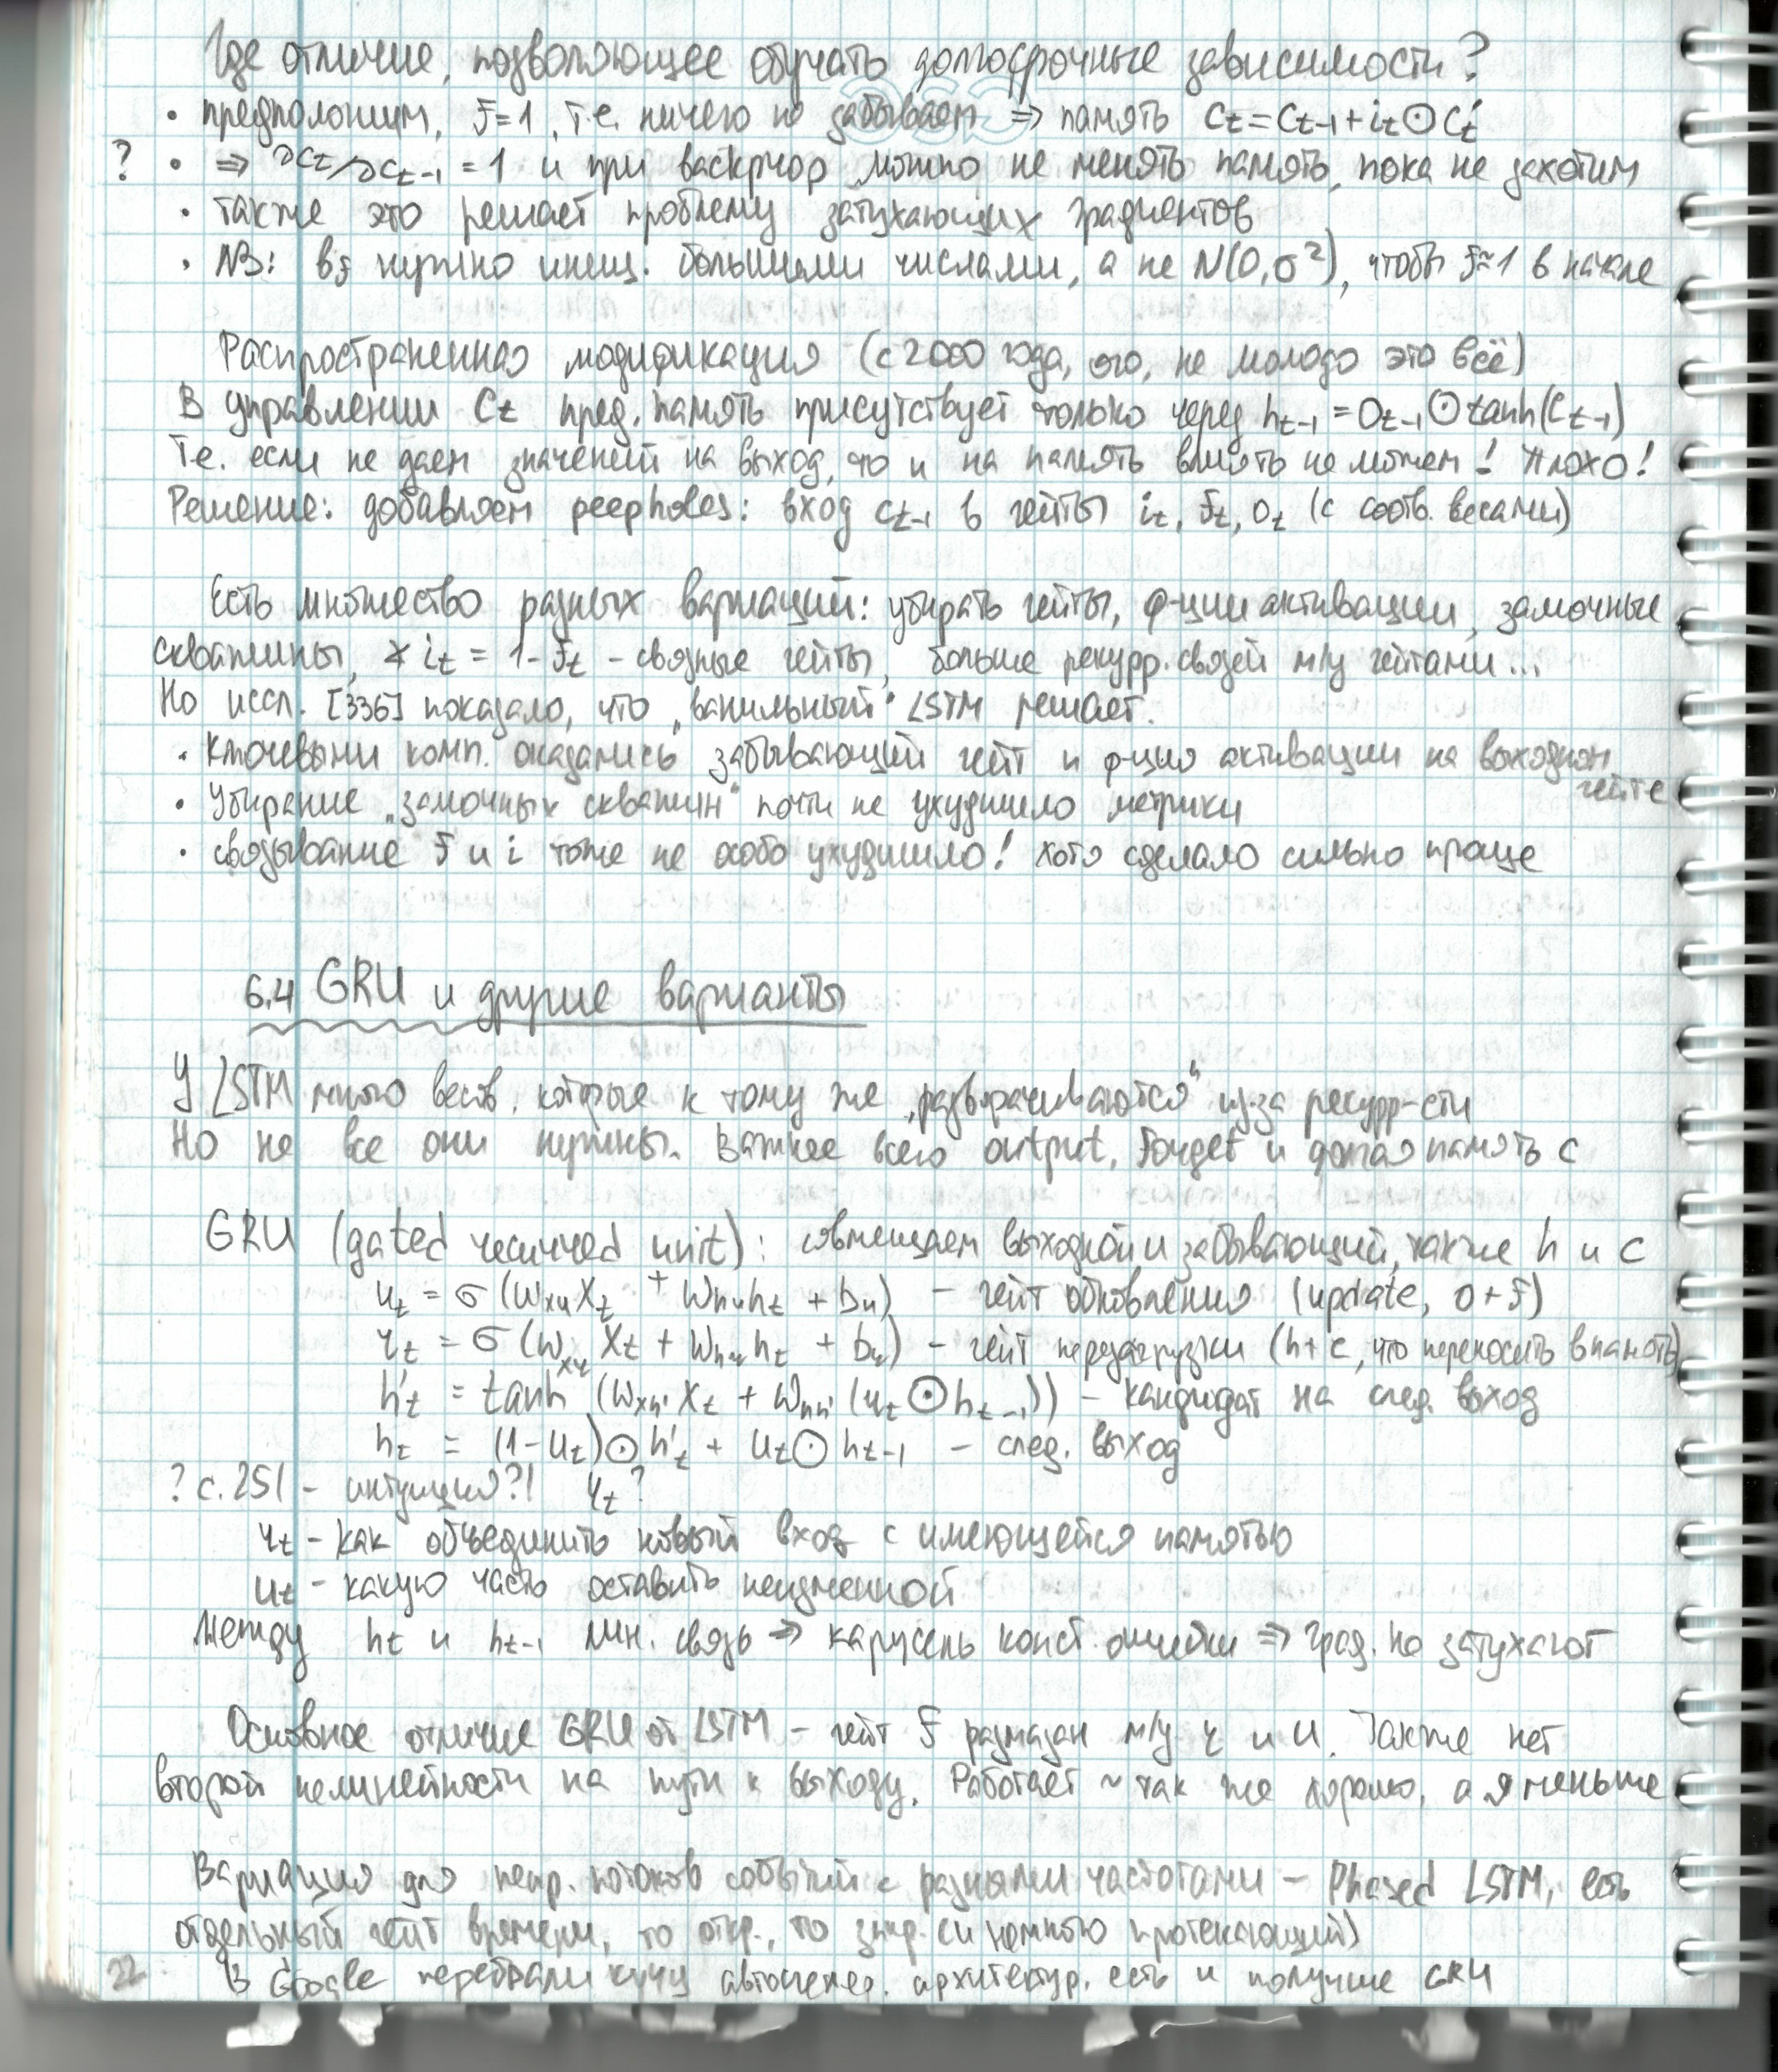 Где отличие, позволяющее обучать долгосрочные зависимости?
• предположим, f=1, т.е. ничего не забываем ⇒ память c_t = c_{t-1} + i_t ⊙ c'_t
? • ⇒ ∂c_t/∂c_{t-1} = 1 и при backprop можно не менять память, пока не захотим
• также это решает проблему затухающих градиентов
• NB: b_f нужно иниц. большими числами, а не N(0,σ²), чтобы f≈1 в начале
Распространенная модификация (с 2000 года, ого, не молодо это всё)
В управлении c_t пред. память присутствует только через h_{t-1} = o_{t-1} ⊙ tanh(c_{t-1})
Т.е. если не даем значений на выход, то и на память влиять не можем! Плохо!
Решение: добавляем peepholes: вход c_{t-1} в гейты i_t, f_t, o_t (с соотв. весами)
Есть множество разных вариаций: убирать гейты, ф-ции активации, замочные
скважины, i_t = 1 - f_t - связные гейты, больше рекурр. связей м/у гейтами...
Но иссл. [336] показало, что „ванильный" LSTM решает.
• ключевыми комп. оказались забывающий гейт и ф-ция активации на выходном
гейте
• убирание „замочных скважин" почти не ухудшило метрики
• связывание f и i тоже не особо ухудшило! хотя сделало сильно проще
6.4 GRU и другие варианты
У LSTM много весов, которые к тому же „разворачиваются" из-за рекурр-сти
Но не все они нужны. Важнее всего output, forget и долгая память c
GRU (gated recurred unit): совмещаем выходной и забывающий, также h и c
u_t = σ(W_{xu} x_t + W_{hu} h_t + b_u) - гейт обновления (update, o+f)
r_t = σ(W_{xr} x_t + W_{hr} h_t + b_r) - гейт перезагрузки (h+c, что переносить в память)
h'_t = tanh(W_{xh'} x_t + W_{hh'} (r_t ⊙ h_{t-1})) - кандидат на след. выход
h_t = (1-u_t) ⊙ h'_t + u_t ⊙ h_{t-1} - след. выход
? с. 251 - интуиция?! r_t?
r_t - как объединить новый вход с имеющейся памятью
u_t - какую часть оставить неизменной
Между h_t и h_{t-1} лин. связь ⇒ карусель конст. ошибки ⇒ град. не затухают
Основное отличие GRU от LSTM - гейт f размазан м/у r и u. Также нет
второй нелинейности на пути к выходу. Работает ~ так же хорошо, а меньше
Вариация для непр. потоков событий с разными частотами - Phased LSTM, есть
отдельный гейт времени, то откр., то закр. (и немного протекающий)
В Google перебрали кучу автогенер. архитектур, есть и получше GRU
22